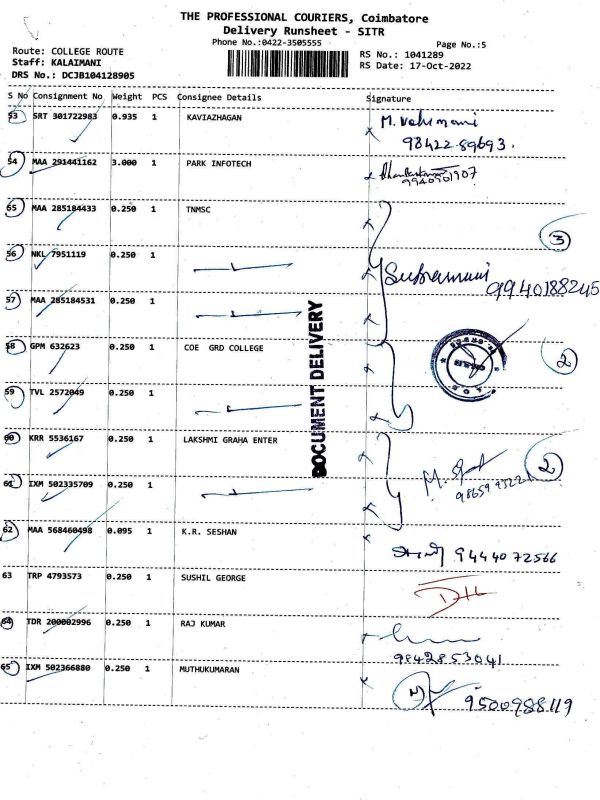 THE PROFESSIONAL COURIERS, Coimbatore
Delivery Runsheet - SITR
Phone No.:0422-3505555
Page No.:5
Route: COLLEGE ROUTE
RS No.: 1041289
Staff: KALAIMANI
RS Date: 17-Oct-2022
DRS No.: DCJB104128905
S No Consignment No Weight PCS Consignee Details Signature
53 SRT 301722983 0.935 1 KAVIAZHAGAN
98422 89693.
54 MAA 291441162 3.000 1 PARK INFOTECH
9940501907
55 MAA 285184433 0.250 1 TNMSC
3
56 NKL 7951119 0.250 1
Subramani 9940188245
57 MAA 285184531 0.250 1
58 GPM 632623 0.250 1 COE GRD COLLEGE
2
59 TVL 2572049 0.250 1
DOCUMENT DELIVERY
60 KRR 5536167 0.250 1 LAKSHMI GRAHA ENTER
2
61 IXM 502335709 0.250 1
62 MAA 568460498 0.095 1 K.R. SESHAN
9444072566
63 TRP 4793573 0.250 1 SUSHIL GEORGE
64 TDR 200002996 0.250 1 RAJ KUMAR
9842853041
65 IXM 502366880 0.250 1 MUTHUKUMARAN
9500988119